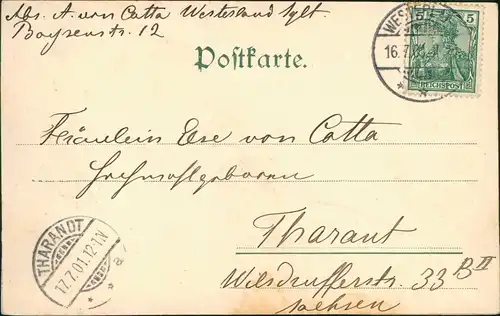 Abs. A. von Cotta Westerland Sylt.
Boysenstr. 12
Postkarte.
5 5
REICHSPOST
16.7.01
Fräulein Ese von Cotta
Hochwohlgeboren
Tharant
Wilsdrufferstr. 33 B II
Sachsen
THARANDT
17.7.01.12-1N
* * a